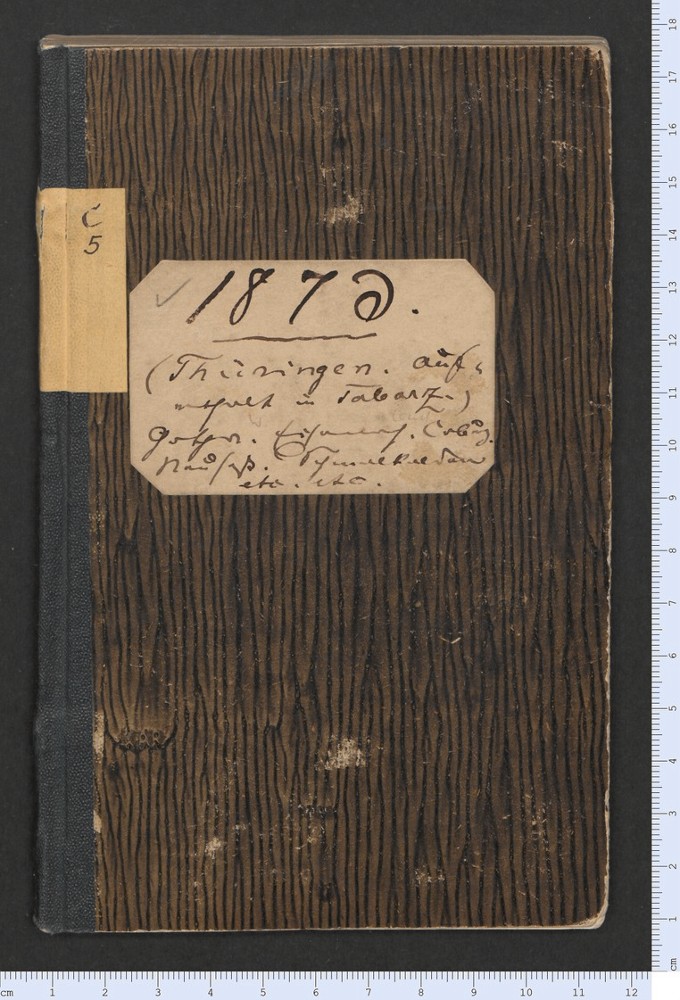 C
5
1873.
(Thüringen. Auf-
enthalt in Tabarz.)
Gotha. Eisenach. Coburg.
Neuseß. Schmalkalden
etc. etc.
18
17
16
15
14
13
12
11
10
9
8
7
6
5
4
3
2
1
cm
cm 1 2 3 4 5 6 7 8 9 10 11 12